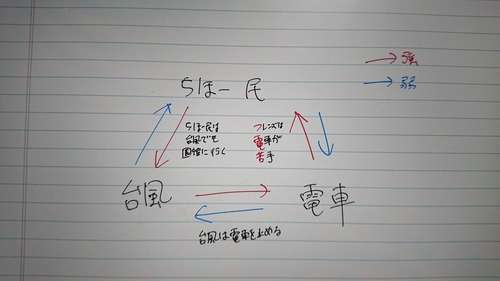 強
弱
ちほー民
ちほー民は
台風でも
図書館に行く
フレンズは
電車が
苦手
台風
電車
台風は電車を止める